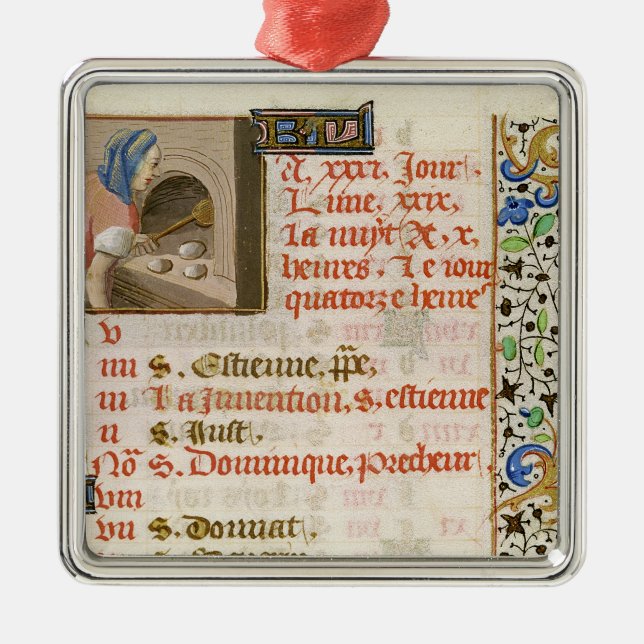 A. xxxi. Jour
Lune, xxix,
La nuyt A, x,
heures. Le iour
quatorze heures
v
iiii S. Estienne, ppe,
iii La Inuention, S, estienne
ii S. Just,
No S. Dominique, precheur
viii
vii S. Donnat,